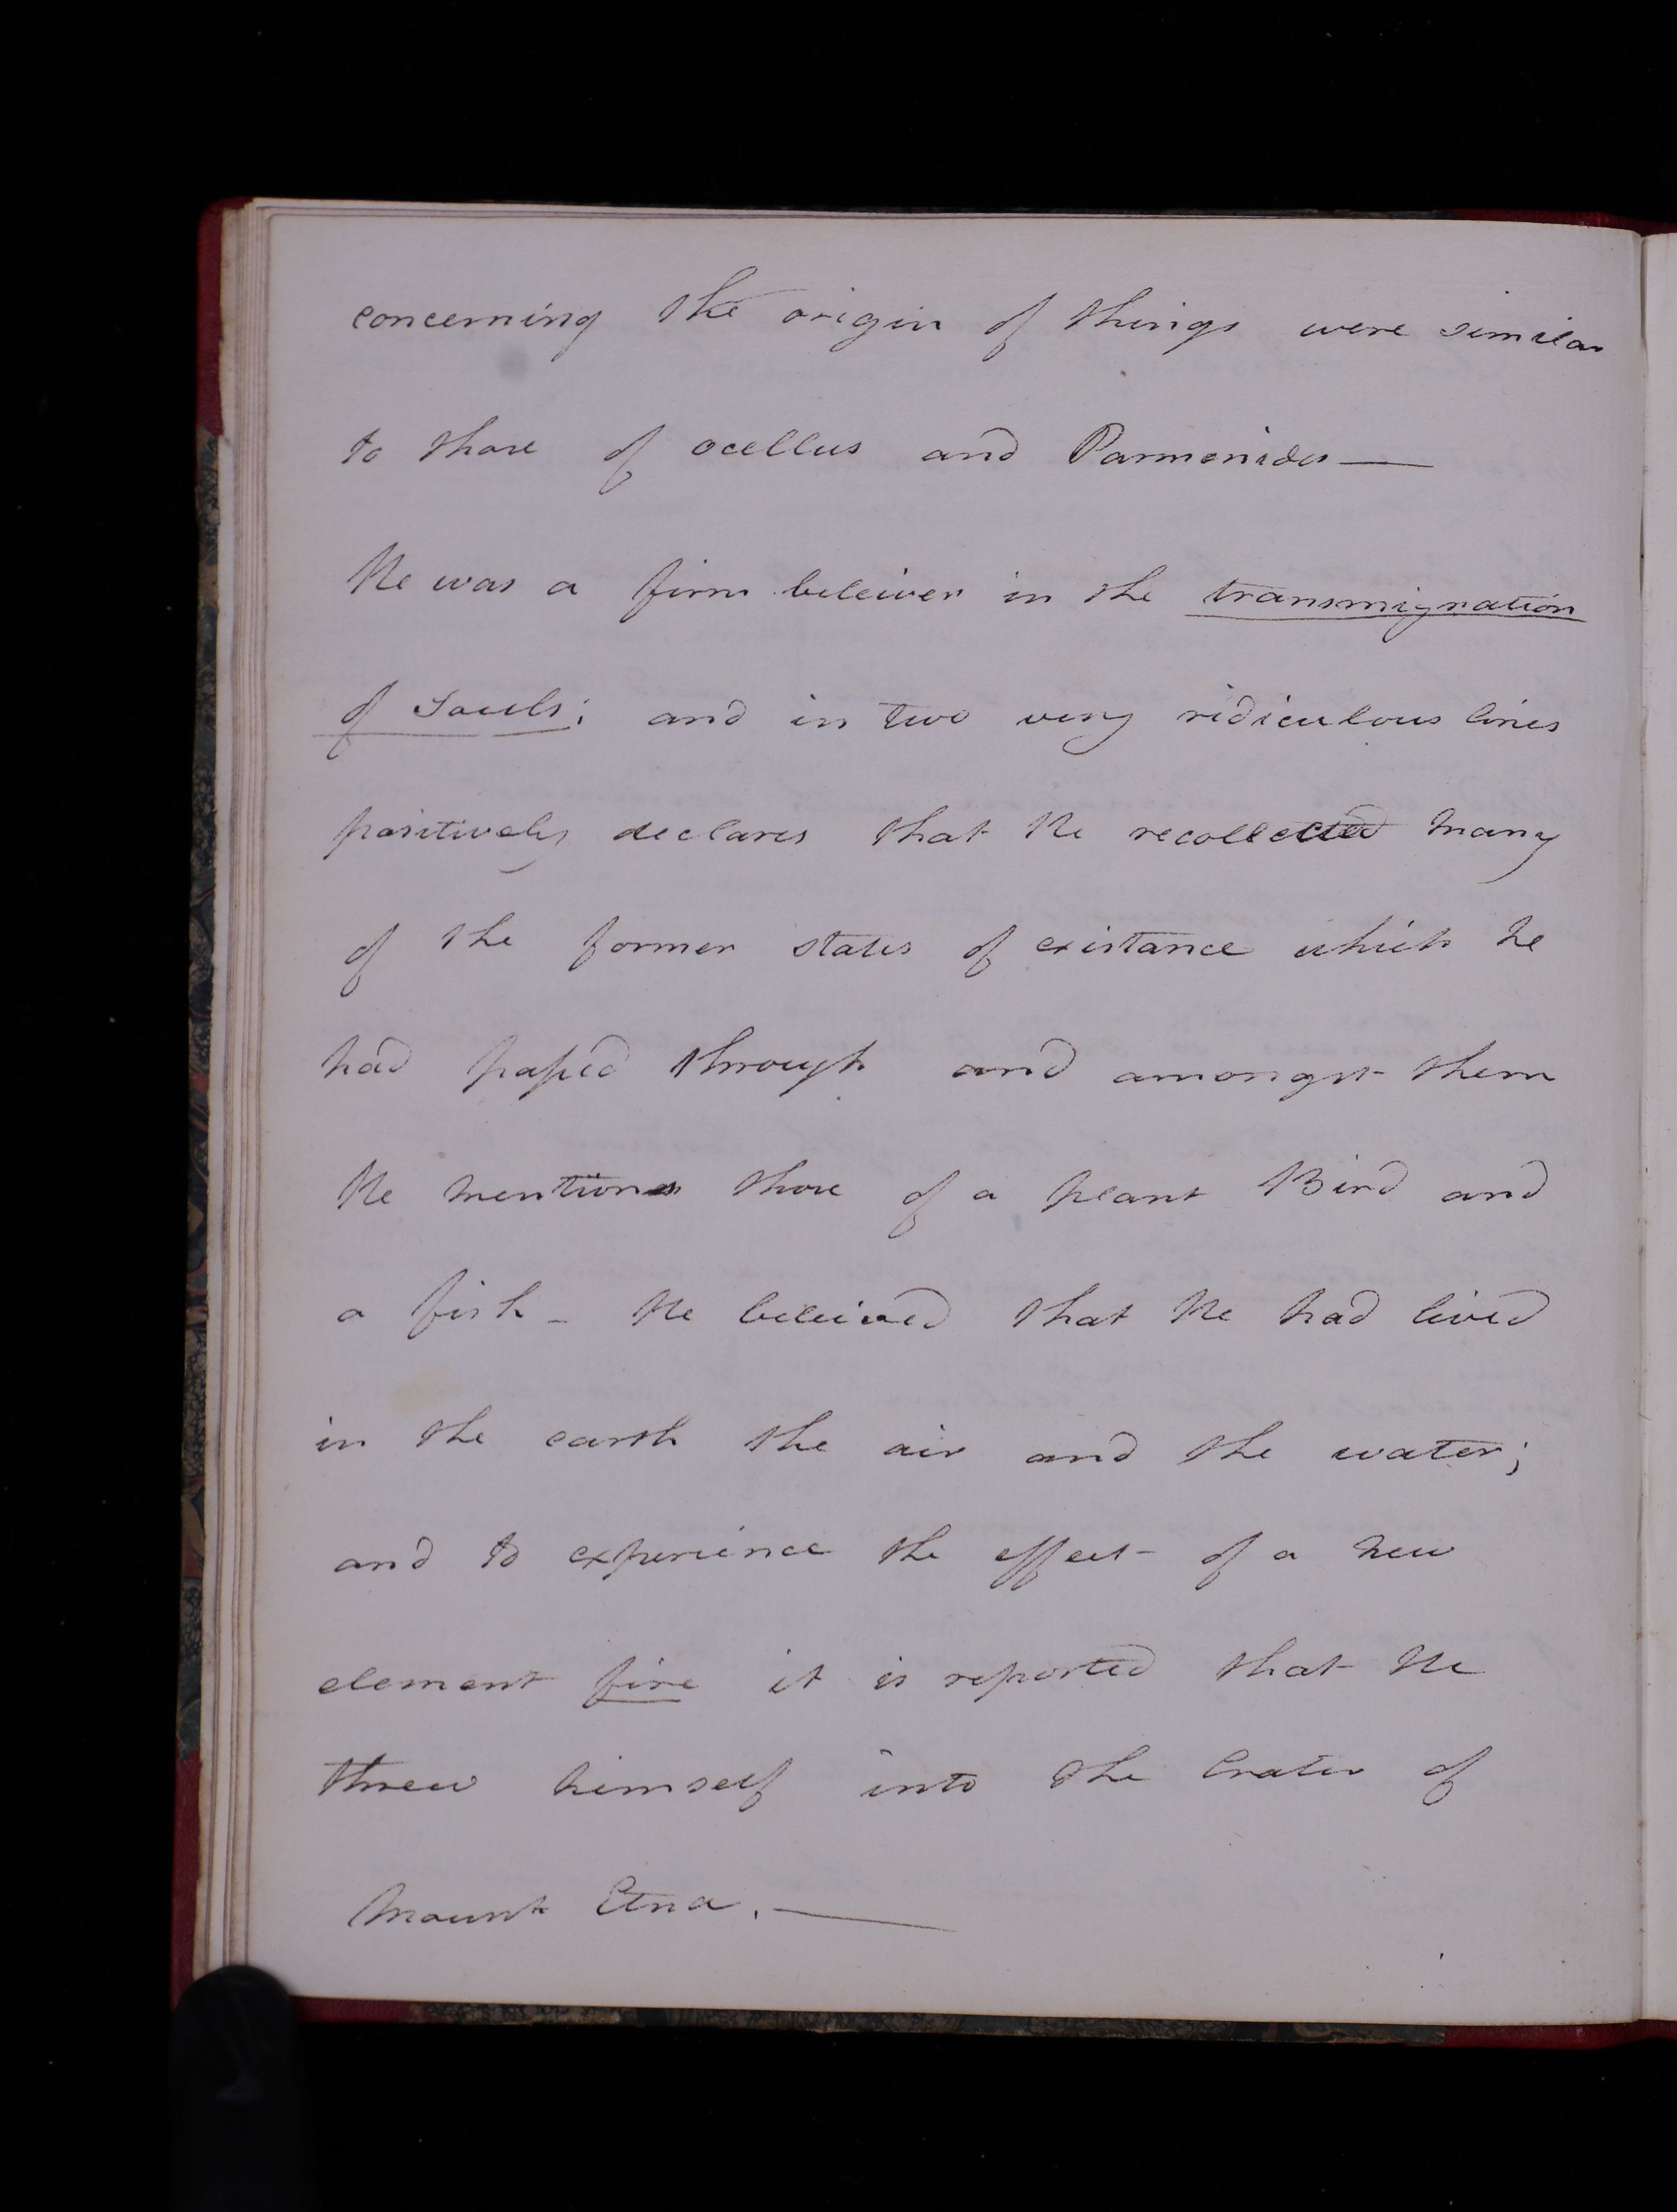 concerning the origin of things were similar
to those of ocellus and Parmenides —
He was a firm beleiver in the transmigration
of Souls; and in two very ridiculous lines
positively declares that he recollected many
of the former states of existance which he
had passed through and amongst them
He mentions those of a plant Bird and
a fish - He beleived that He had lived
in the earth the air and the water;
and to experience the effect of a new
element fire it is reported that He
threw himself into the Crater of
Mount Etna. —